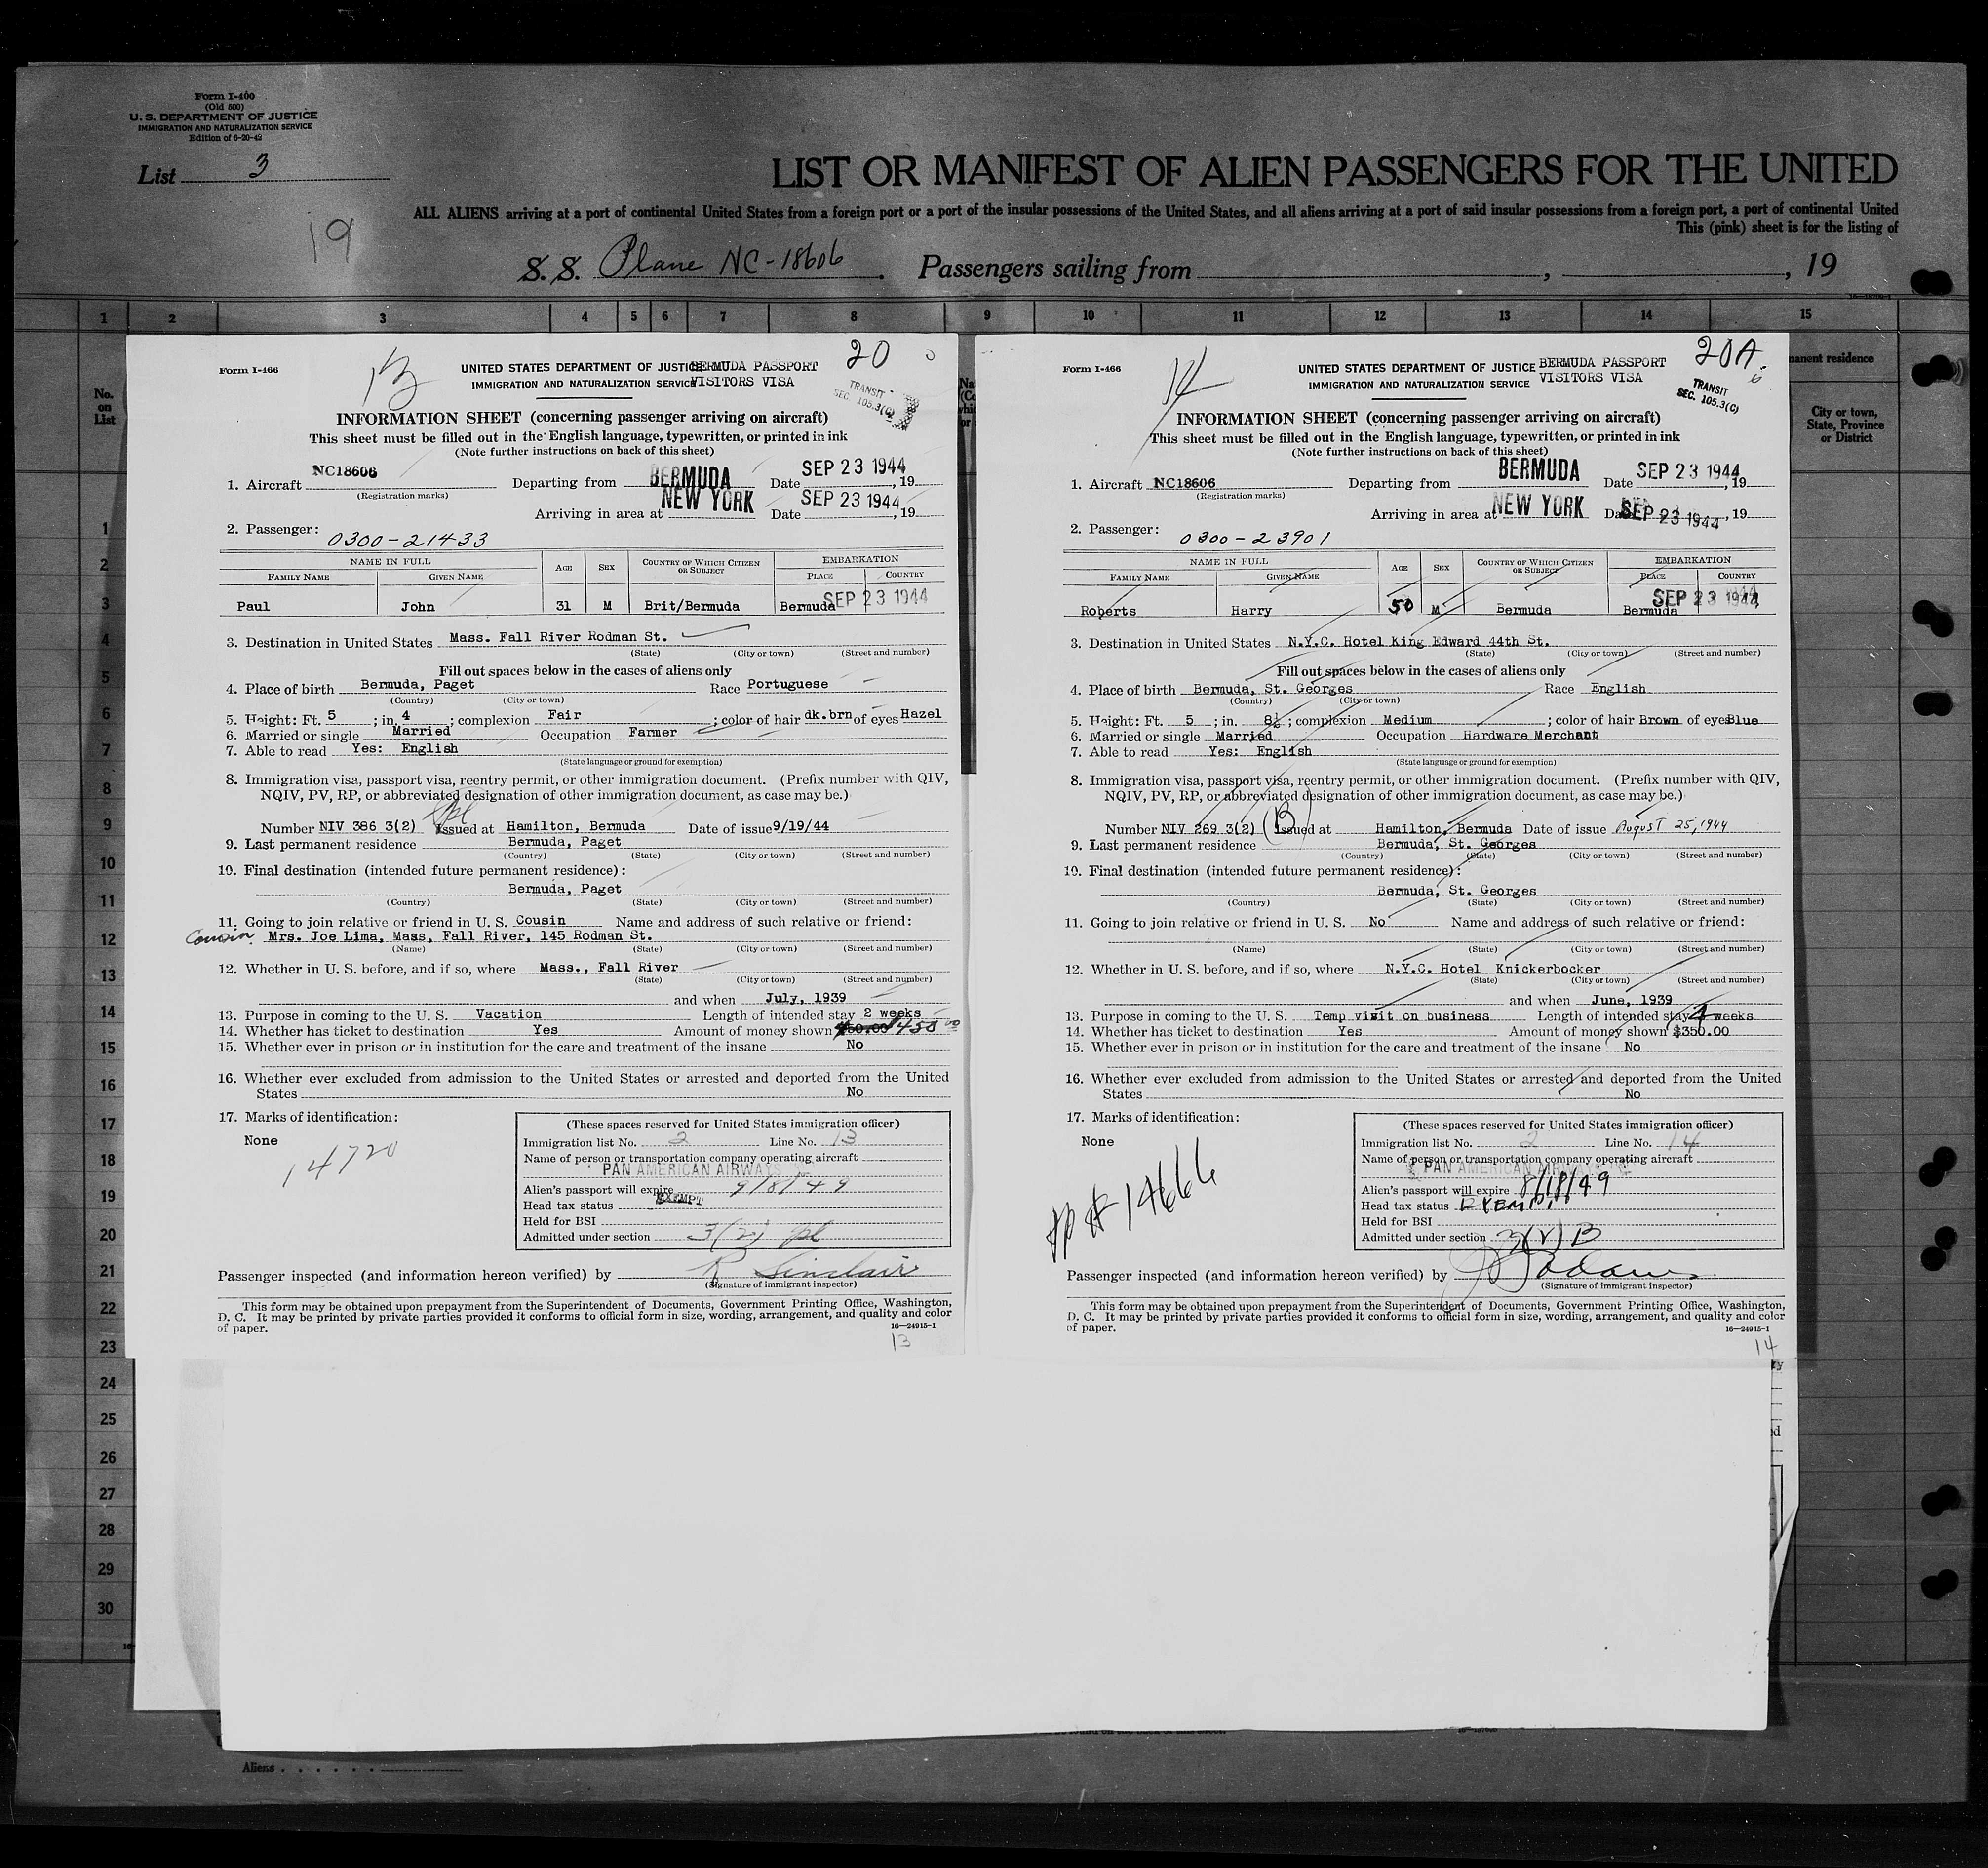 Form I-400
(Old 500)
U. S. DEPARTMENT OF JUSTICE
IMMIGRATION AND NATURALIZATION SERVICE
Edition of 6-20-42
List 3
19
LIST OR MANIFEST OF ALIEN PASSENGERS FOR THE UNITED
ALL ALIENS arriving at a port of continental United States from a foreign port or a port of the insular possessions of the United States, and all aliens arriving at a port of said insular possessions from a foreign port, a port of continental United
This (pink) sheet is for the listing of
S. S. Plane NC-18606. Passengers sailing from , , 19
1 2 3 4 5 6 7 8 9 10 11 12 13 14 15
No. on List
City or town, State, Province or District
anent residence
1
2
3
4
5
6
7
8
9
10
11
12
13
14
15
16
17
18
19
20
21
22
23
24
25
26
27
28
29
30
Form I-466
13
UNITED STATES DEPARTMENT OF JUSTICE
BERMUDA PASSPORT
20
IMMIGRATION AND NATURALIZATION SERVICE
VISITORS VISA
TRANSIT
SEC. 105.3(C)
INFORMATION SHEET (concerning passenger arriving on aircraft)
This sheet must be filled out in the English language, typewritten, or printed in ink
(Note further instructions on back of this sheet)
1. Aircraft NC18606 Departing from BERMUDA Date SEP 23 1944, 19
(Registration marks)
Arriving in area at NEW YORK Date SEP 23 1944, 19
2. Passenger: 0300-21433
NAME IN FULL AGE SEX COUNTRY OF WHICH CITIZEN OR SUBJECT EMBARKATION
FAMILY NAME GIVEN NAME PLACE COUNTRY
Paul John 31 M Brit/Bermuda Bermuda SEP 23 1944
3. Destination in United States Mass. Fall River Rodman St.
(State) (City or town) (Street and number)
Fill out spaces below in the cases of aliens only
4. Place of birth Bermuda, Paget Race Portuguese
(Country) (City or town)
5. Height: Ft. 5 ; in. 4 ; complexion Fair ; color of hair dk.brn of eyes Hazel
6. Married or single Married Occupation Farmer
7. Able to read Yes: English
(State language or ground for exemption)
8. Immigration visa, passport visa, reentry permit, or other immigration document. (Prefix number with QIV,
NQIV, PV, RP, or abbreviated designation of other immigration document, as case may be.)
Number NIV 386 3(2) Issued at Hamilton, Bermuda Date of issue 9/19/44
9. Last permanent residence Bermuda, Paget
(Country) (State) (City or town) (Street and number)
10. Final destination (intended future permanent residence):
Bermuda, Paget
(Country) (State) (City or town) (Street and number)
11. Going to join relative or friend in U. S. Cousin Name and address of such relative or friend:
Cousin Mrs. Joe Lima, Mass, Fall River, 145 Rodman St.
(Name) (State) (City or town) (Street and number)
12. Whether in U. S. before, and if so, where Mass., Fall River
(State) (City or town) (Street and number)
and when July, 1939
13. Purpose in coming to the U. S. Vacation Length of intended stay 2 weeks
14. Whether has ticket to destination Yes Amount of money shown
15. Whether ever in prison or in institution for the care and treatment of the insane No
16. Whether ever excluded from admission to the United States or arrested and deported from the United
States No
17. Marks of identification:
None
14720
(These spaces reserved for United States immigration officer)
Immigration list No. 2 Line No. 13
Name of person or transportation company operating aircraft
PAN AMERICAN AIRWAYS
Alien's passport will expire 9/8/49
Head tax status EXEMPT
Held for BSI
Admitted under section 3(2) pl
Passenger inspected (and information hereon verified) by R Sinclair
(Signature of immigrant inspector)
This form may be obtained upon prepayment from the Superintendent of Documents, Government Printing Office, Washington,
D. C. It may be printed by private parties provided it conforms to official form in size, wording, arrangement, and quality and color
of paper.
16—24915-1
13
Form I-466
14
UNITED STATES DEPARTMENT OF JUSTICE
BERMUDA PASSPORT
20A
IMMIGRATION AND NATURALIZATION SERVICE
VISITORS VISA
TRANSIT
SEC. 105.3(C)
INFORMATION SHEET (concerning passenger arriving on aircraft)
This sheet must be filled out in the English language, typewritten, or printed in ink
(Note further instructions on back of this sheet)
1. Aircraft NC18606 Departing from BERMUDA Date SEP 23 1944, 19
(Registration marks)
Arriving in area at NEW YORK Date SEP 23 1944, 19
2. Passenger: 0300-23901
NAME IN FULL AGE SEX COUNTRY OF WHICH CITIZEN OR SUBJECT EMBARKATION
FAMILY NAME GIVEN NAME PLACE COUNTRY
Roberts Harry 50 M Bermuda Bermuda SEP 23 1944
3. Destination in United States N.Y.C. Hotel King Edward 44th St.
(State) (City or town) (Street and number)
Fill out spaces below in the cases of aliens only
4. Place of birth Bermuda, St. Georges Race English
(Country) (City or town)
5. Height: Ft. 5 ; in. 8½ ; complexion Medium ; color of hair Brown of eyes Blue
6. Married or single Married Occupation Hardware Merchant
7. Able to read Yes: English
(State language or ground for exemption)
8. Immigration visa, passport visa, reentry permit, or other immigration document. (Prefix number with QIV,
NQIV, PV, RP, or abbreviated designation of other immigration document, as case may be.)
Number NIV 269 3(2) (B) Issued at Hamilton, Bermuda Date of issue August 25, 1944
9. Last permanent residence Bermuda, St. Georges
(Country) (State) (City or town) (Street and number)
10. Final destination (intended future permanent residence):
Bermuda, St. Georges
(Country) (State) (City or town) (Street and number)
11. Going to join relative or friend in U. S. No Name and address of such relative or friend:
(Name) (State) (City or town) (Street and number)
12. Whether in U. S. before, and if so, where N.Y.C. Hotel Knickerbocker
(State) (City or town) (Street and number)
and when June, 1939
13. Purpose in coming to the U. S. Temp visit on business Length of intended stay 4 weeks
14. Whether has ticket to destination Yes Amount of money shown $350.00
15. Whether ever in prison or in institution for the care and treatment of the insane No
16. Whether ever excluded from admission to the United States or arrested and deported from the United
States No
17. Marks of identification:
None
pp # 14666
(These spaces reserved for United States immigration officer)
Immigration list No. 2 Line No. 14
Name of person or transportation company operating aircraft
PAN AMERICAN AIRWAYS
Alien's passport will expire 8/18/49
Head tax status EXEMPT
Held for BSI
Admitted under section 3(2) B
Passenger inspected (and information hereon verified) by
(Signature of immigrant inspector)
This form may be obtained upon prepayment from the Superintendent of Documents, Government Printing Office, Washington,
D. C. It may be printed by private parties provided it conforms to official form in size, wording, arrangement, and quality and color
of paper.
16—24915-1
14
Aliens